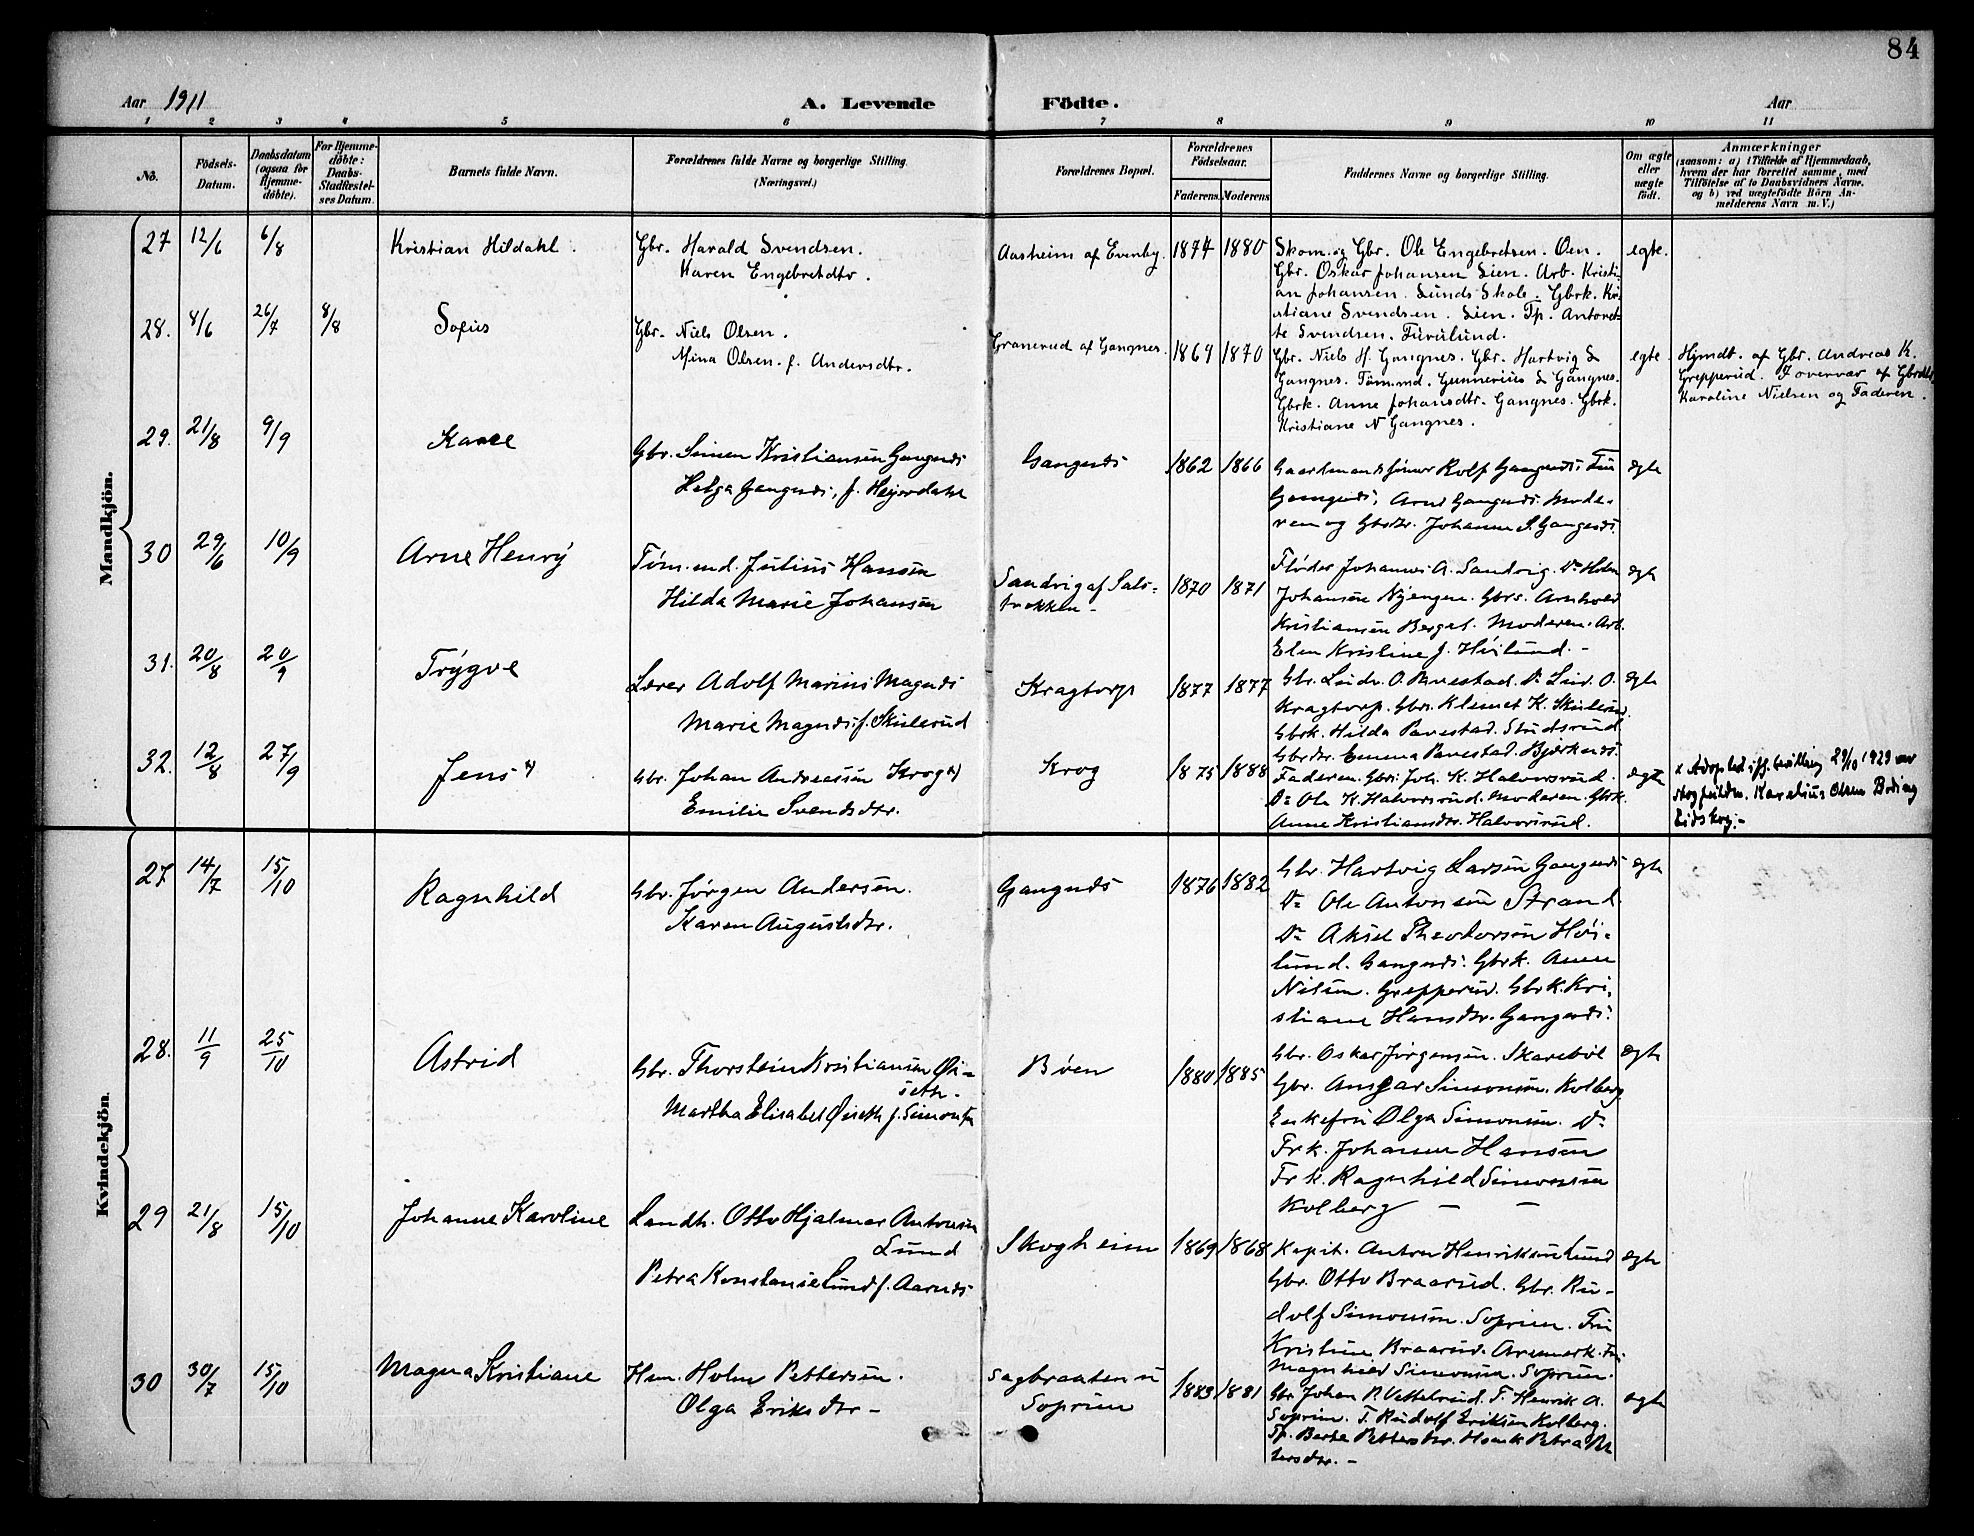 84
Aar 1911
A. Levende Födte.
Aar
1 2 3 4 5 6 7 8 9 10 11
No.
Födsels-Datum.
Daabsdatum (ogsaa for Hjemmedöbte).
For Hjemmedöbte: Daabs-Stadfæstelses Datum.
Barnets fulde Navn.
Forældrenes fulde Navne og borgerlige Stilling.
(Næringsvei.)
Forældrenes Bopæl.
Forældrenes Födselsaar.
Faderens Moderens
Faddernes Navne og borgerlige Stilling.
Om ægte eller uægte födt.
Anmærkninger
(saasom: a) i Tilfælde af Hjemmedaab,
hvem der har forrettet samme, med
Tilföielse af to Daabsvidners Navne,
og b) ved uægtefödte Börn An-
melderens Navn m. V.)
Mandkjön.
27 12/6 6/8 Kristian Hildahl.
Gbr. Harald Svendsen.
Karen Engebretdtr.
Aasheim af Evenby. 1874 1880
Skom. og Gbr. Ole Engebretsen. Oen.
Gbr. Oskar Johansen Lien. Arb. Kristi-
an Johansen. Lunds Skole. Gbrk. Kri-
stiane Svendsen. Lien. Tp. Antonet-
te Svendsen. Furulund.
egte.
28. 8/6 26/7 8/8 Sofus
Gbr. Niels Olsen.
Mina Olsen. f. Andersdtr.
Granerud af Gangnes. 1864 1870
Gbr. Niels H. Gangnes. Gbr. Hartvig L
Gangnes. Tömmd. Gunnerius L Gangnes.
Gbrk. Anne Johansdtr. Gangnes. Gbrk.
Kristiane N Gangnes.
egte.
Hjmdt. af Gbr. Andreas K.
Grepperud. I overvær af Gbrdtr
Karoline Nielsen og Faderen.
29. 21/8 9/9 Kaare
Gbr. Simen Kristiansen Gangnæs
Helga Gangnæs, f.
Gangnæs 1862 1866
Gaardmandssönner Rolf Gangnæs,
Gangnæs, Arne Gangnæs. Mode-
ren og Gbrdtr. Johanne S. Gangnæs.
ægte
30 29/6 10/9 Arne Henry
Töm.md. Julius Hansen
Hilda Marie Johansen
Sandvig af Sals-
trækken - 1870 1871
Flöder Johannes A. Sandvig. Do
Johansen. Gbrs. Arnhold
Kristiansen. Moderen. Arb.
Elen Kristine J. Höilund. -
ægte
31. 20/8 20/9 Trygve
Lærer Adolf Marius Magnæs
Marie Magnæs f. Skulerud
Kragtorp 1877 1877
Gbr. O. Buestad. Do O.
Kragtorp. Gbr. Klemet K. Skulerud.
Gbrk. Hilda Studsrud
Gbrdtr. Emma Bjerknæs.
ægte
32. 12/8 27/9 Jens x)
Gbr. Johan Andreassen Krog x)
Emilie Svendsdtr.
Krog 1875 1888
Faderen. Gbr. Joh. K. Halvorsrud.
Do Ole K. Halvorsrud. Moderen. Gbrk.
Anne Kristiansdtr. Halvorsrud.
ægte
x Adopted iflg. bevilling 29/10 1929 av
Karelius Olsen Boding
Eidskog. -
Kvindekjön.
27 14/7 15/10 Ragnhild
Gbr. Jörgen Andersen.
Karen Augustsdtr.
Gangnæs 1876 1882
Gbr. Hartvig Larsen Gangnæs
Do Ole Antonsen Strand
Do Aksel Theodorsen Höi-
lund. Gangnæs. Gbrk. Anne
Nilsen. Grepperud. Gbrk. Kri-
stiane Hansdtr. Gangnæs.
ægte
28. 11/9 25/10 Astrid
Gbr. Thorstein Kristiansen Øi-
seth.
Martha Elisabet Øiseth f. Simonsen
Böen 1880 1885
Gbr. Oskar Jörgensen. Skareböl
Gbr. Ansgar Simonsen. Kolberg
Enkefru Olga Simonsen. Do
Frk. Johanne Hansen
Frk. Ragnhild Simonsen
Kolberg - -
ægte
29 21/8 15/10 Johanne Karoline
Landh. Otto Hjalmar Antonsen
Lund
Petra Konstanse Lund f. Aarnæs
Skogheim 1869 1868
Kapit. Anton Henriksen Lund
Gbr. Otto Braarud. Gbr. Ru-
dolf Simonsen. Soprim. Fru
Kristine Braarud. Aremark. Fru
Magnhild Simonsen. Soprim.
ægte
30 30/7 15/10 Magna Kristiane
Hsm. Holm Pettersen.
Olga Eriksdtr -
Sagbraaten u
Soprim 1883 1881
Gbr Johan P. Vestelrud. T. Henrik A.
Soprim. T. Rudolf Eriksen Kolberg.
Tp. Berte Pettersdtr. Petra Pet-
tersdtr. -
ægte